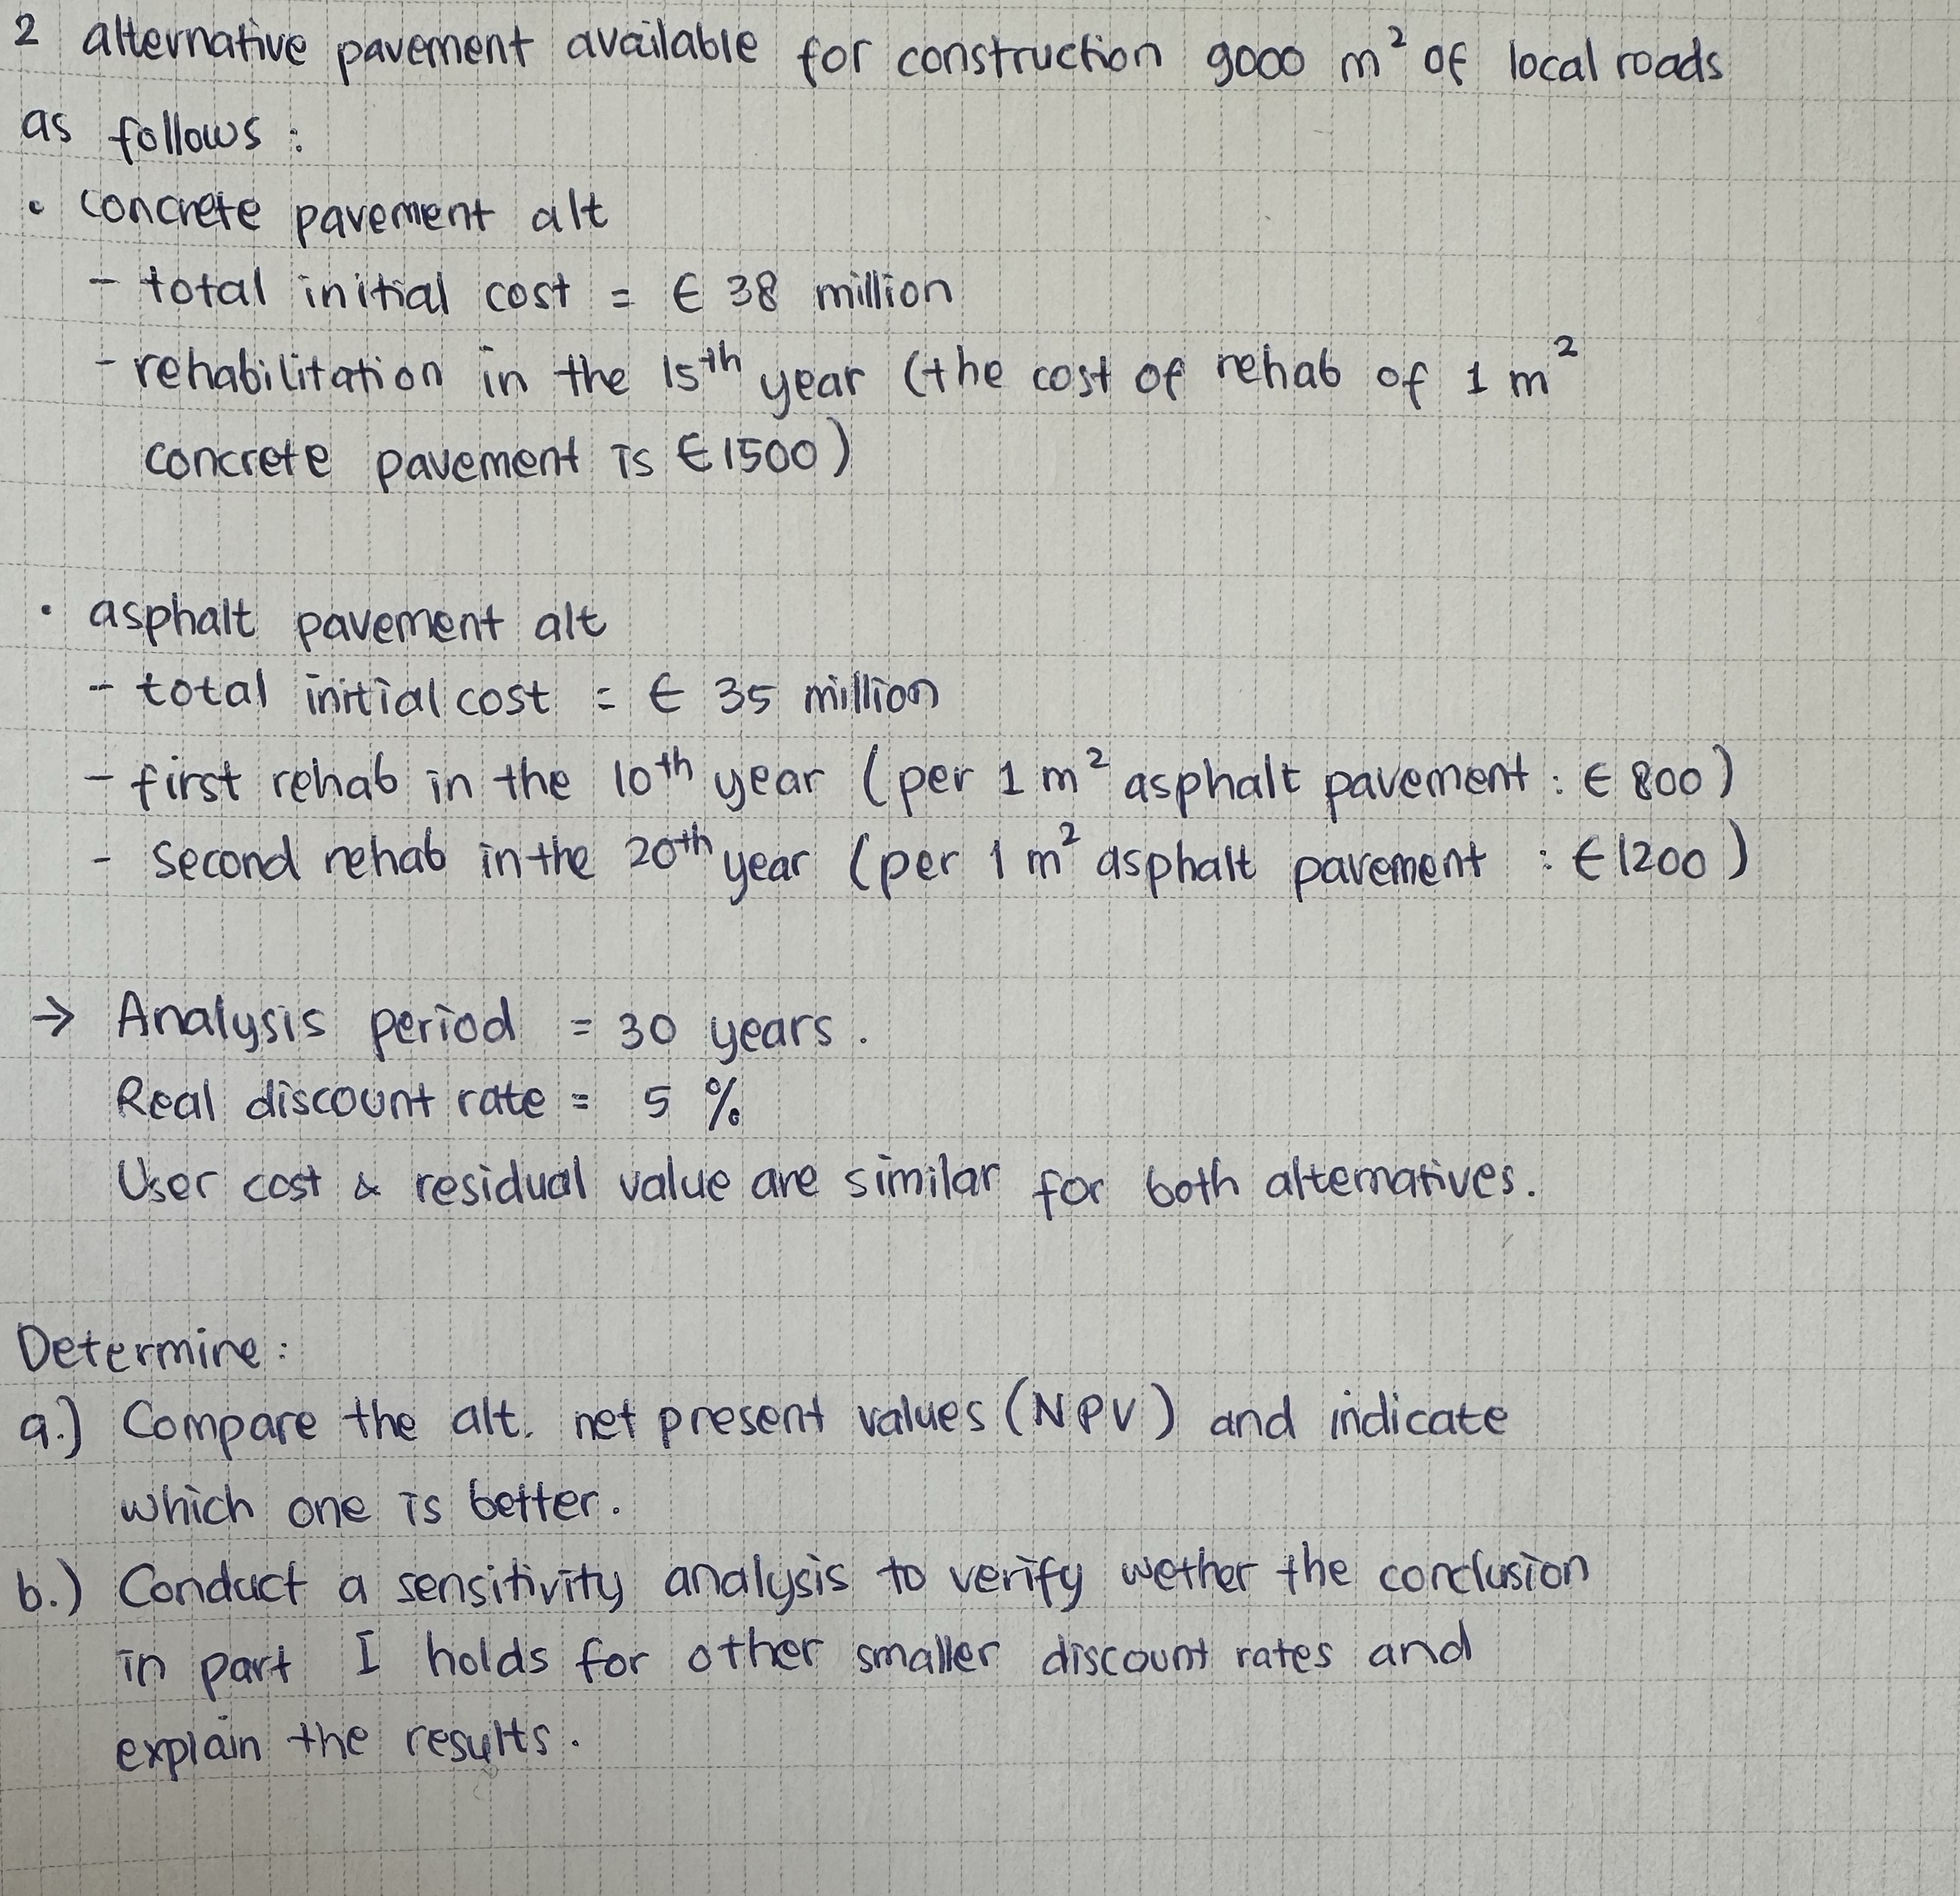 2 alternative pavement available for construction 9000 m² of local roads
as follows :
• concrete pavement alt
- total initial cost = € 38 million
- rehabilitation in the 15th year (the cost of rehab of 1 m²
concrete pavement is €1500)
• asphalt pavement alt
- total initial cost = € 35 million
- first rehab in the 10th year (per 1 m² asphalt pavement : € 800)
- second rehab in the 20th year (per 1 m² asphalt pavement : €1200)
→ Analysis period = 30 years.
Real discount rate = 5 %
User cost & residual value are similar for both alternatives.
Determine :
a.) Compare the alt. net present values (NPV) and indicate
which one is better.
b.) Conduct a sensitivity analysis to verify wether the conclusion
in part I holds for other smaller discount rates and
explain the results.